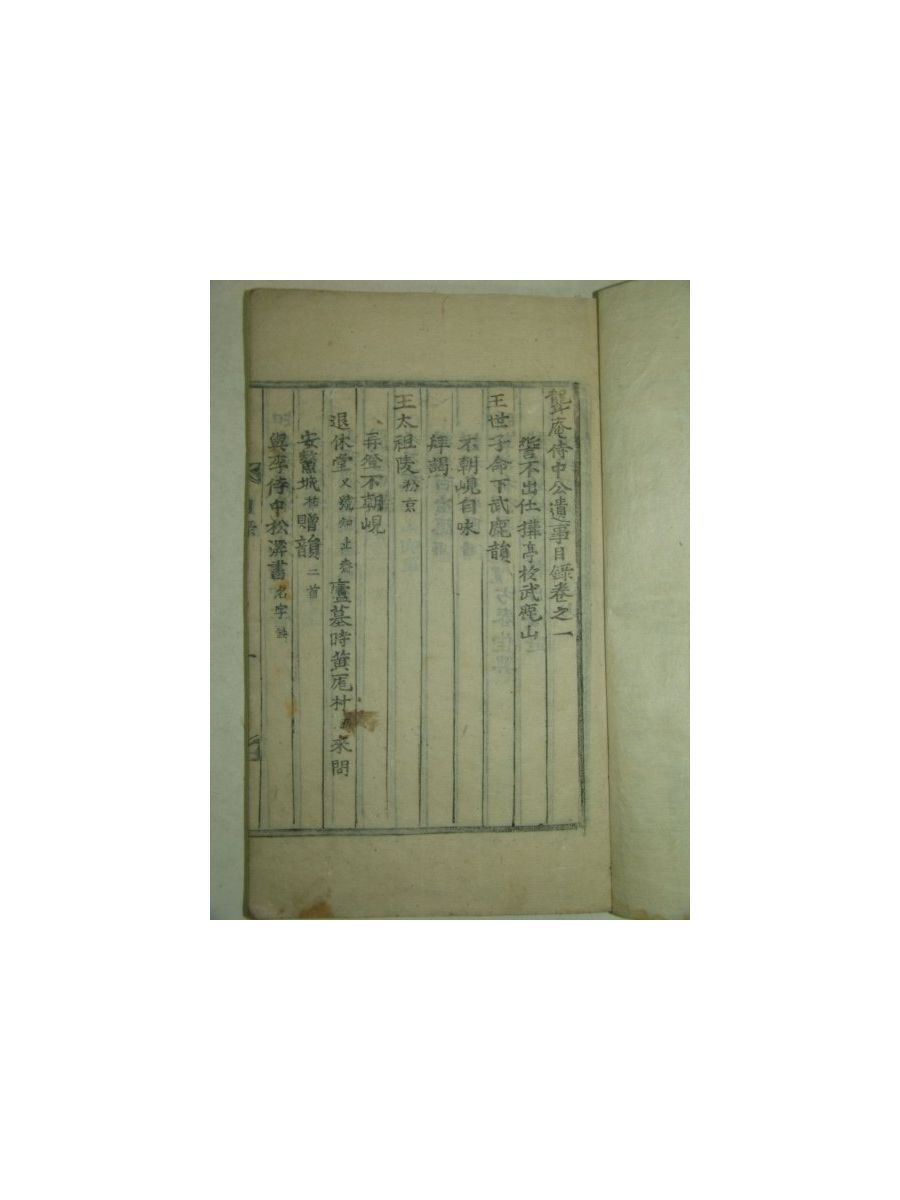 聾庵侍中公遺事目錄卷之一
誓不出仕搆亭於武麂山
王世子命下武麂韻
不朝峴自味
拜謁
王太祖陵松京
再登不朝峴
退休堂又號知止齋廬墓時黃厖村來問
安鰲城祐贈韻二首
與李侍中松澤書名字缺
目錄
一